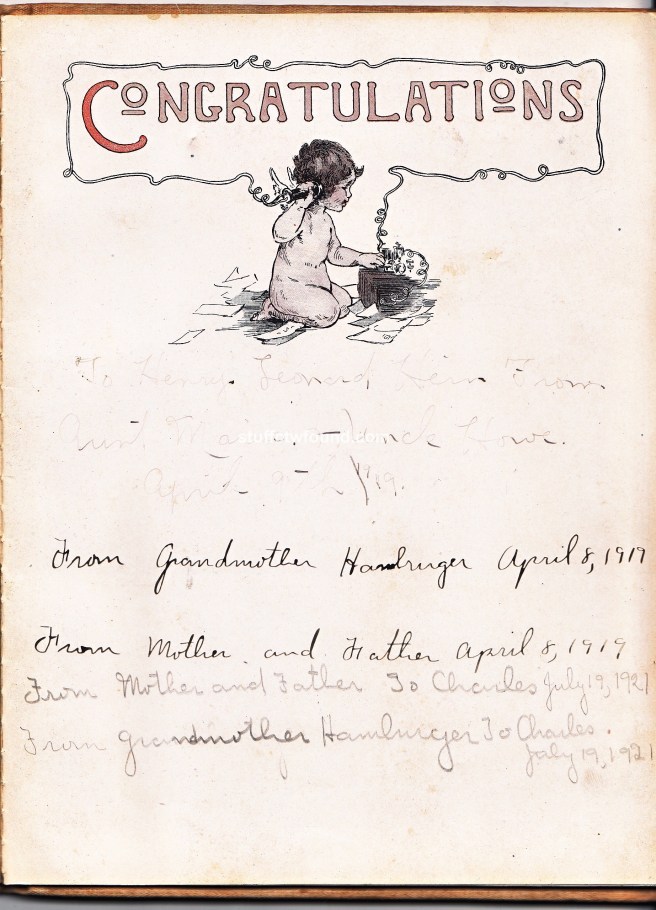 CONGRATULATIONS
To Henry Leonard From
Aunt Uncle Howe.
April 9th 1919.
From Grandmother Hamburger April 8, 1919
From Mother and Father April 8, 1919
From Mother and Father To Charles July 19, 1921
From Grandmother Hamburger To Charles.
July 19, 1921